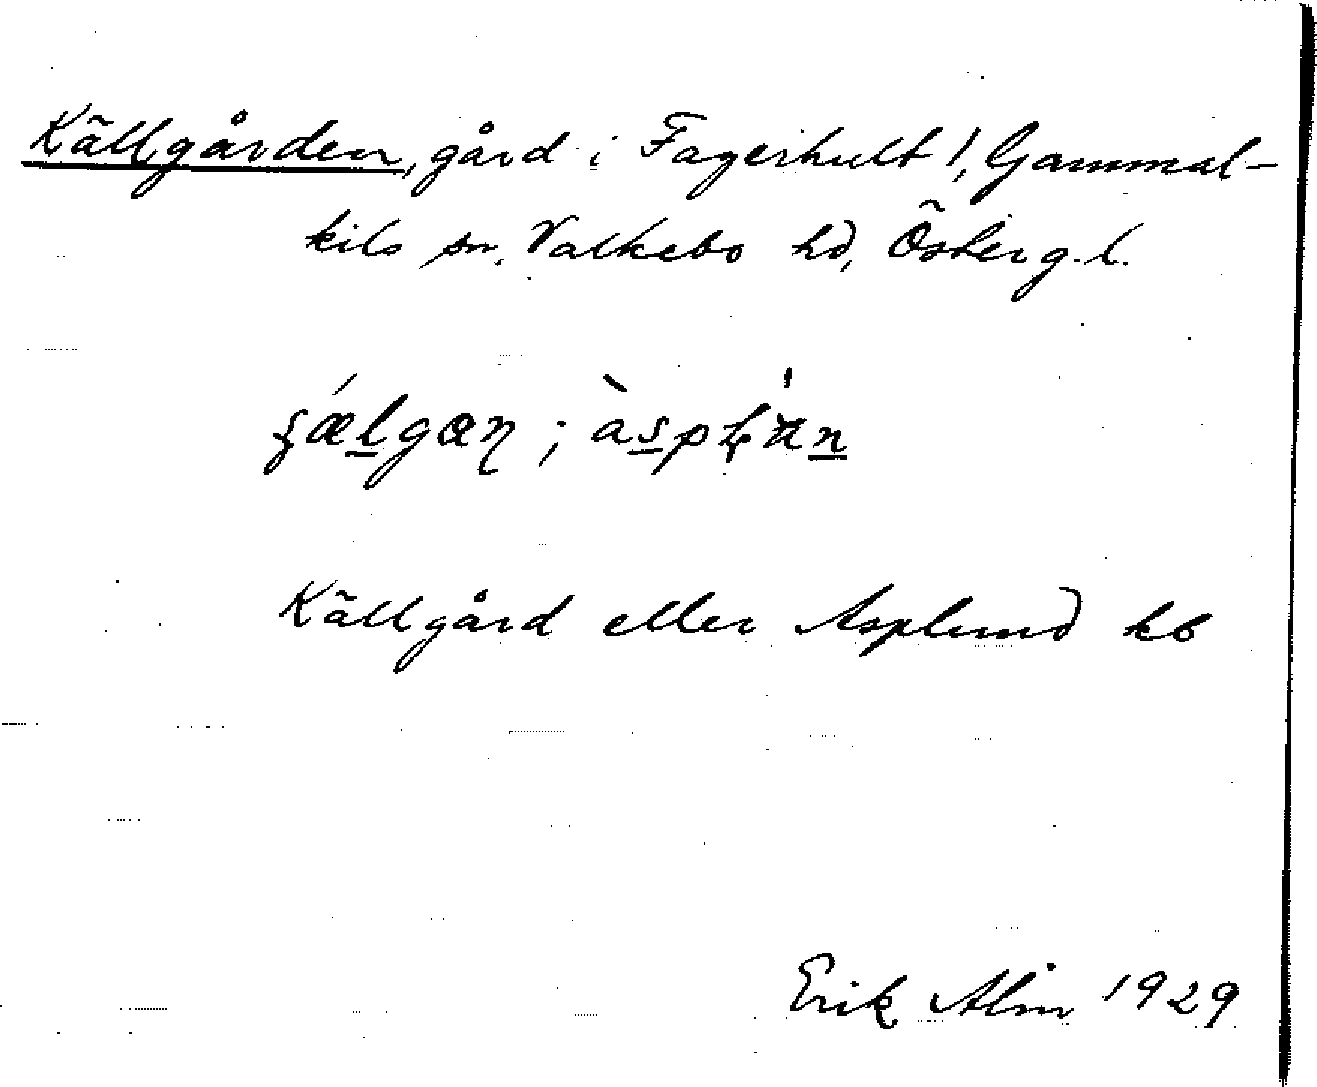 Källgården, gård i Fagerhult!, Gammal-
kils sn, Valkebo hd, Österg. l.
Källgård eller Asplund kb
Erik Alm 1929